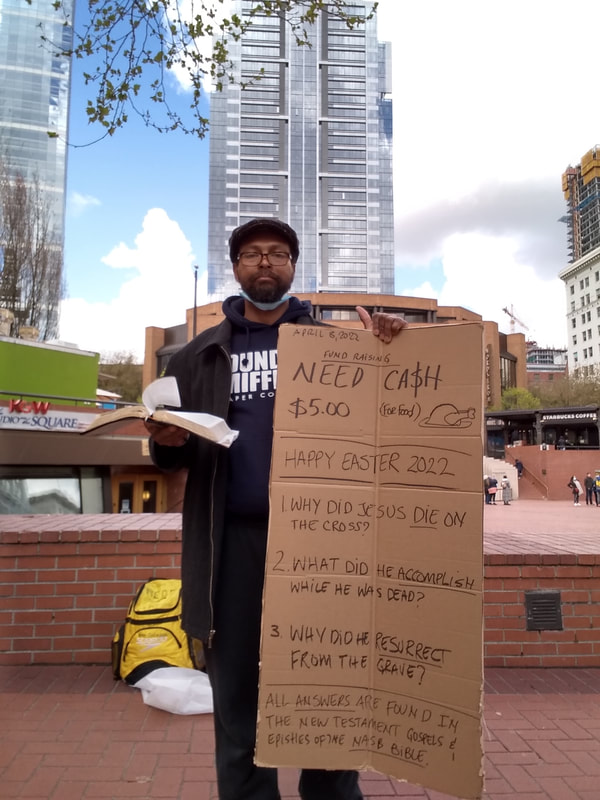 APRIL 8, 2022
FUND RAISING
NEED CA$H
$5.00 (FOR FOOD)
HAPPY EASTER 2022
1. WHY DID JESUS DIE ON
THE CROSS?
2. WHAT DID HE ACCOMPLISH
WHILE HE WAS DEAD?
3. WHY DID HE RESURRECT
FROM THE GRAVE?
ALL ANSWERS ARE FOUND IN
THE NEW TESTAMENT GOSPELS &
EPISTLES OF THE NASB BIBLE.
KGW
STUDIO ON THE SQUARE
STARBUCKS COFFEE